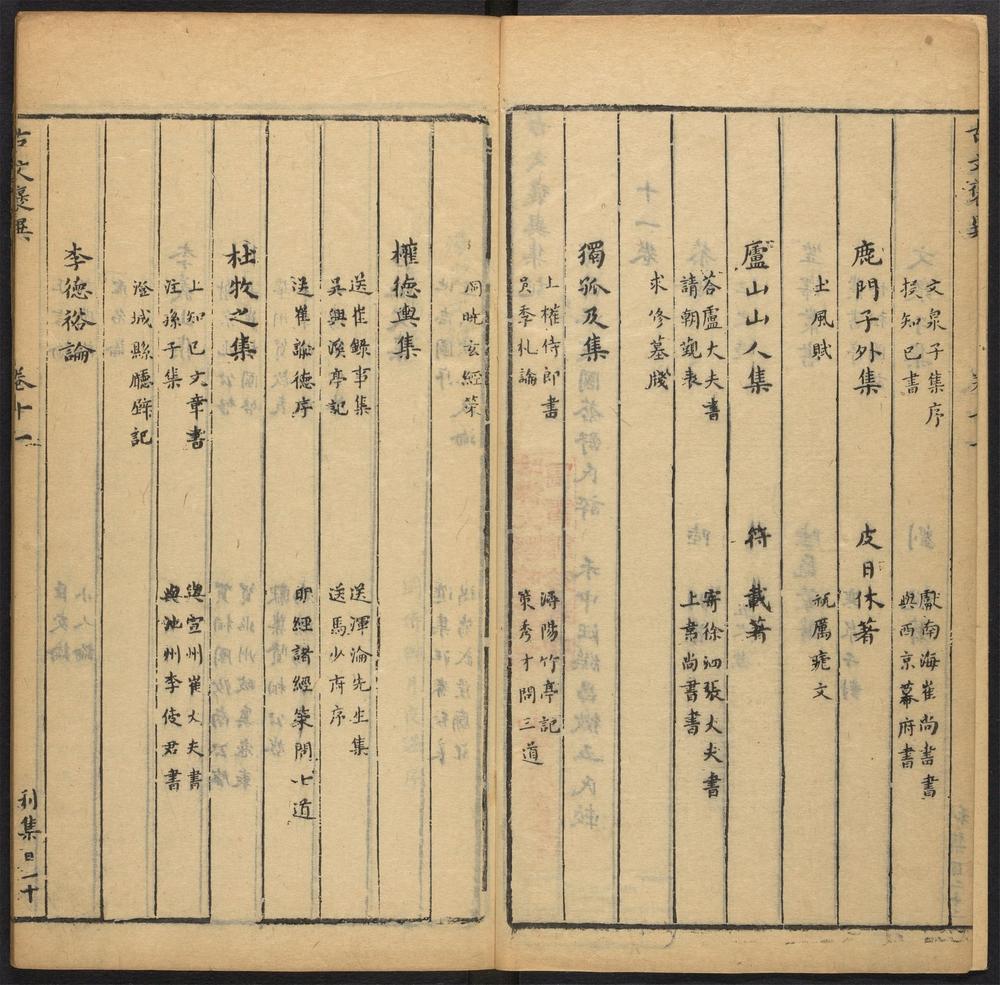 文泉子集序
獻南海崔尚書書
投知己書
與西京幕府書
鹿門子外集
皮日休著
土風賦
祝瘧癘文
廬山山人集
符載著
荅盧大夫書
寄徐泗張大夫書
請朝覲表
上書尚書書
求修墓牋
獨孤及集
上權侍郎書
潯陽竹亭記
吳季札論
策秀才問三道
洞晄玄經策
權德輿集
送崔錄事集
送渾淪先生集
吳興溪亭記
送馬少府序
送崔諭德序
明經諸經策問七道
杜牧之集
上知己文章書
與宣州崔大夫書
注孫子集
與池州李使君書
澄城縣廳辟記
李德裕論
古文褒異
卷十一
利集目二十